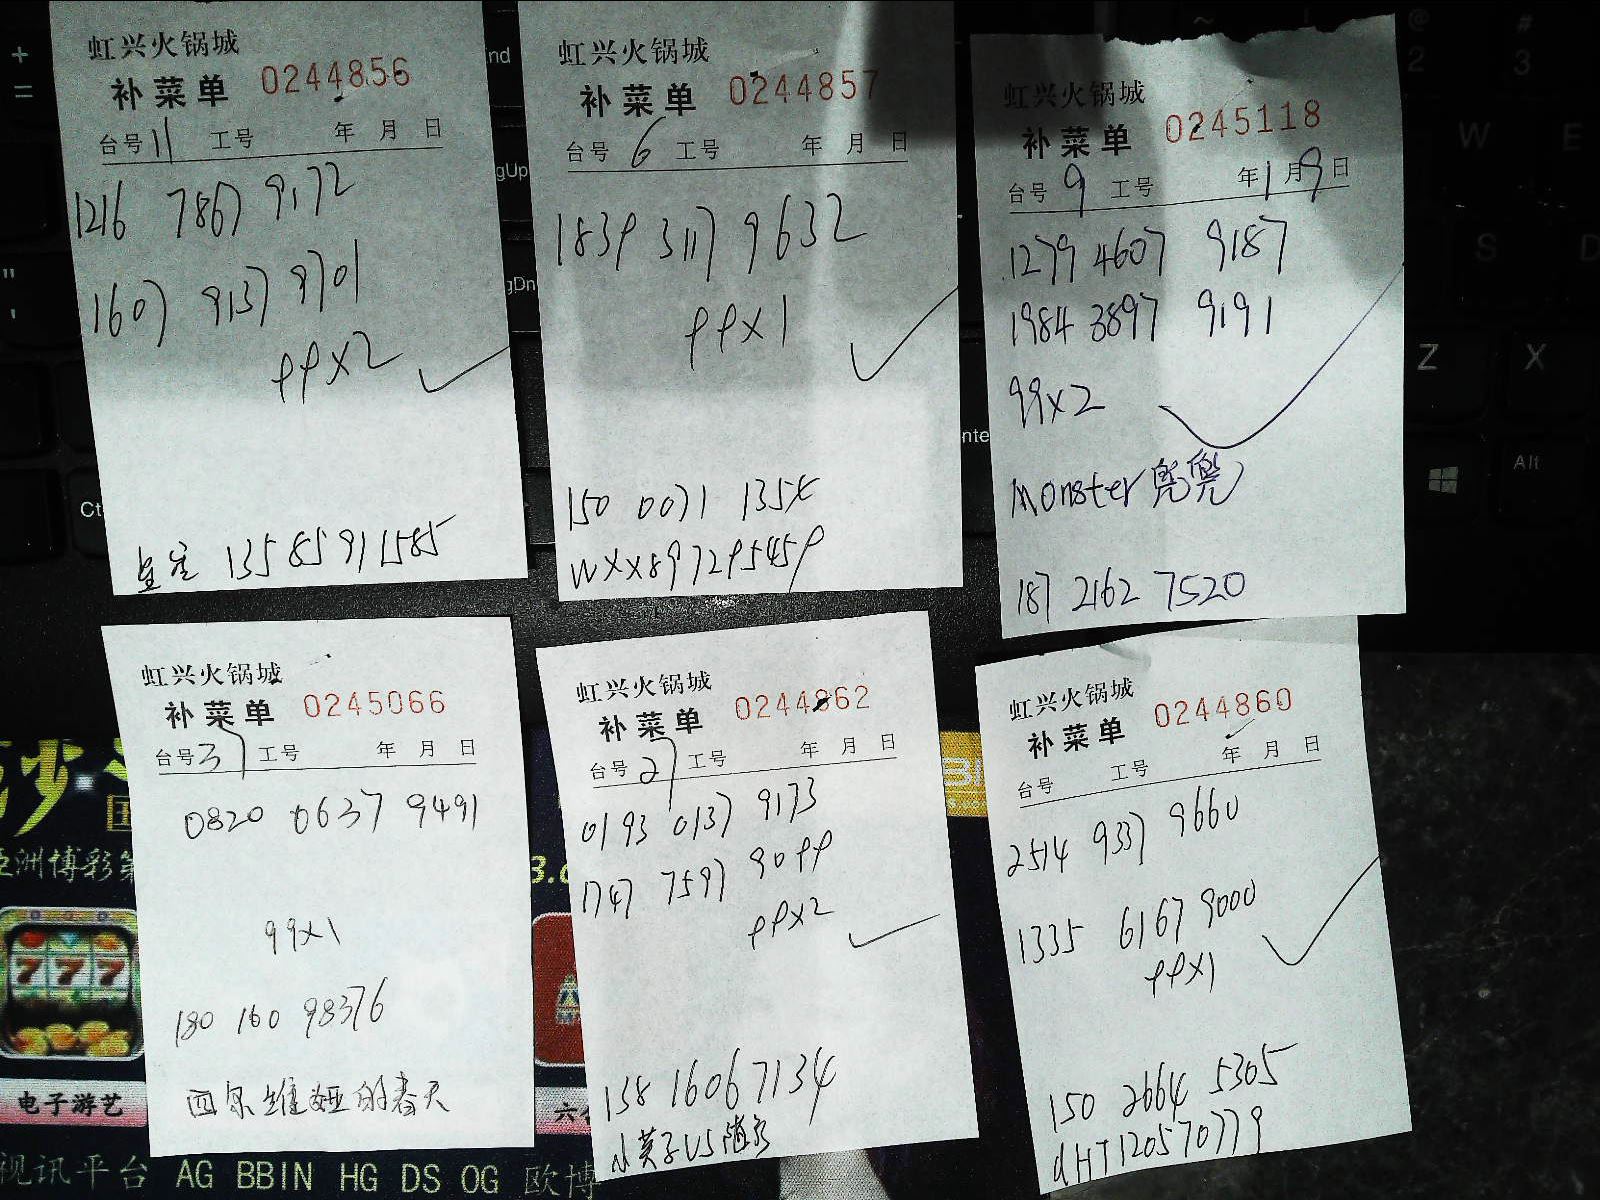 虹兴火锅城
补菜单 0244856
台号 11 工号 年 月 日
1216 7867 9172
1607 9137 9701
99x2
13585911585
虹兴火锅城
补菜单 0244857
台号 6 工号 年 月 日
1839 3117 9632
99x1
150 0071 135x
WXX897295459
虹兴火锅城
补菜单 0245118
台号 9 工号 年 1 月 9 日
1279 4607 9187
1984 3897 9191
99x2
Monster兜兜
187 2162 7520
虹兴火锅城
补菜单 0245066
台号 37 工号 年 月 日
0820 0637 9491
99x1
180 160 98376
西尔维娅的春天
虹兴火锅城
补菜单 0244862
台号 27 工号 年 月 日
0193 0137 9173
1747 7597 9099
99x2
138 1606 7134
虹兴火锅城
补菜单 0244860
台号 工号 年 月 日
2514 9337 9660
1335 6167 9000
99x1
150 2664 5305
dHT120570779
亚洲博彩第
电子游艺
视讯平台 AG BBIN HG DS OG 欧博
PgUp
PgDn
Alt
Z X
W E
S D